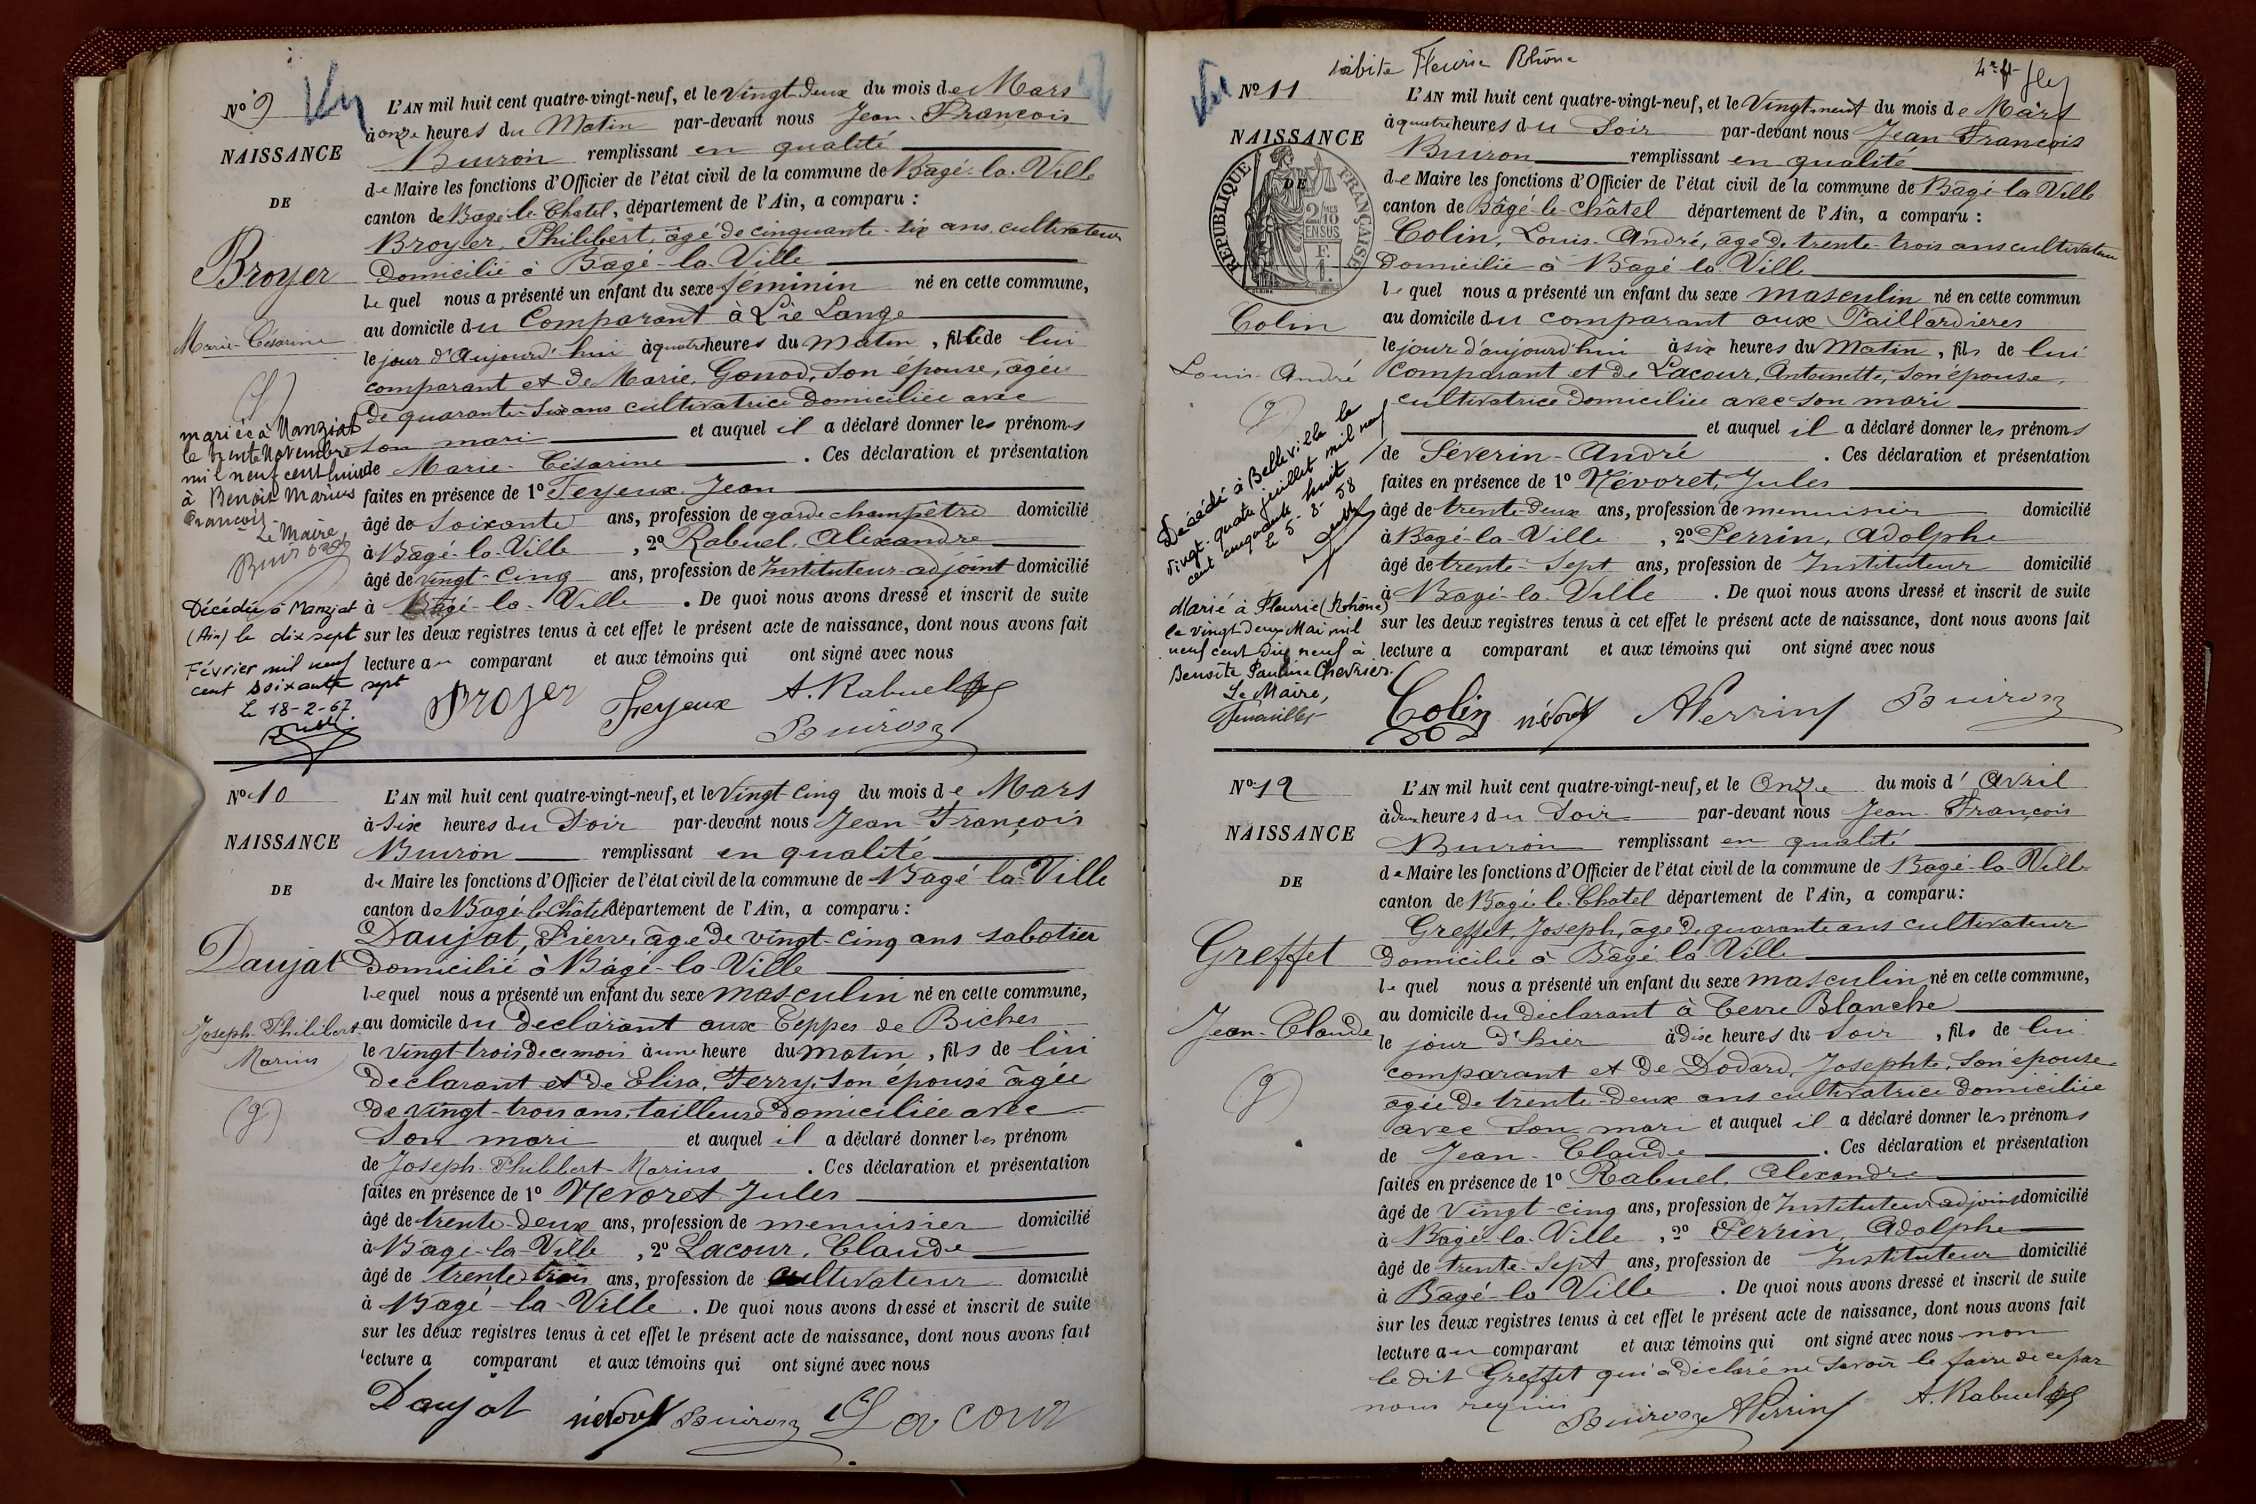 Nº 9
L'AN mil huit cent quatre-vingt-neuf, et le Vingt-Deux du mois de Mars
à onze heures du Matin par-devant nous Jean-François
NAISSANCE
Buiron remplissant en qualité
de Maire les fonctions d'Officier de l'état civil de la commune de Bâgé-la-Ville
DE
canton de Bagé-le-Chatel, département de l'Ain, a comparu :
Broyer, Philibert, âgé de cinquante-six ans, cultivateur
Broyer
Domicilié à Bâgé-la-Ville
lequel nous a présenté un enfant du sexe féminin né en cette commune,
au domicile du Comparant à
Marie-Césarine
le jour d'aujourd'hui à quatre heures du matin, fille de lui
comparant et de Marie Gonod, son épouse, âgée
de quarante-six ans cultivatrice domiciliée avec
son mari et auquel il a déclaré donner les prénoms
de Marie-Césarine. Ces déclaration et présentation
faites en présence de 1º Feyeux Jean
âgé de soixante ans, profession de garde champêtre domicilié
à Bâgé-la-Ville, 2º Rabuel, Alexandre
âgé de vingt-cinq ans, profession de Instituteur-adjoint domicilié
à Bâgé-la-Ville. De quoi nous avons dressé et inscrit de suite
sur les deux registres tenus à cet effet le présent acte de naissance, dont nous avons fait
lecture au comparant et aux témoins qui ont signé avec nous
mariée à Manziat
le trente Novembre
mil neuf cent huit
à Benoit Marius
François.
Le Maire
Buiron
Décédée à Manziat
(Ain) le dix sept
Février mil neuf
cent soixante sept
Le 18-2-67
Broyer Feyeux A. Rabuel
Buiron
Nº 10
L'AN mil huit cent quatre-vingt-neuf, et le Vingt-Cinq du mois de Mars
à six heures du Soir par-devant nous Jean François
NAISSANCE
Buiron remplissant en qualité
de Maire les fonctions d'Officier de l'état civil de la commune de Bâgé-la-Ville
DE
canton de Bâgé-le-Châtel département de l'Ain, a comparu :
Daujat, Pierre, âgé de vingt-cinq ans sabotier
Daujat
Domicilié à Bâgé-la-Ville
lequel nous a présenté un enfant du sexe masculin né en cette commune,
Joseph-Philibert-
Marius
(g)
au domicile du déclarant aux Teppes de Biches
le vingt-trois de ce mois à une heure du matin, fils de lui
déclarant et de Elisa, Ferry, son épouse âgée
de vingt-trois ans, tailleuse domiciliée avec
son mari et auquel il a déclaré donner les prénom
de Joseph-Philibert-Marius. Ces déclaration et présentation
faites en présence de 1º Névoret Jules
âgé de trente-deux ans, profession de menuisier domicilié
à Bâgé-la-Ville, 2º Lacour, Claude
âgé de trente trois ans, profession de cultivateur domicilié
à Bâgé-la-Ville. De quoi nous avons dressé et inscrit de suite
sur les deux registres tenus à cet effet le présent acte de naissance, dont nous avons fait
lecture a comparant et aux témoins qui ont signé avec nous
Daujat névoret Buiron Lacour
habite Fleurie Rhône
Nº 11
L'AN mil huit cent quatre-vingt-neuf, et le Vingt-neuf du mois de Mars
à quatre heures du Soir par-devant nous Jean François
NAISSANCE
Buiron remplissant en qualité
de Maire les fonctions d'Officier de l'état civil de la commune de Bâgé-la-Ville
DE
RÉPUBLIQUE FRANÇAISE
canton de Bâgé-le-Châtel département de l'Ain, a comparu :
Colin, Louis-André, âgé de trente-trois ans cultivateur
Domicilié à Bâgé-la-Ville
lequel nous a présenté un enfant du sexe masculin né en cette commun
Colin
au domicile du comparant aux Paillardières
le jour d'aujourd'hui à six heures du Matin, fils de lui
Louis-André
(g)
comparant et de Lacour, Antoinette, son épouse,
cultivatrice domiciliée avec son mari
et auquel il a déclaré donner les prénoms
de Séverin-André. Ces déclaration et présentation
faites en présence de 1º Névoret, Jules
âgé de trente-deux ans, profession de menuisier domicilié
à Bâgé-la-Ville, 2º Perrin, Adolphe
âgé de trente-sept ans, profession de Instituteur domicilié
à Bâgé-la-Ville. De quoi nous avons dressé et inscrit de suite
sur les deux registres tenus à cet effet le présent acte de naissance, dont nous avons fait
lecture a comparant et aux témoins qui ont signé avec nous
Décédé à Belleville le
vingt-quatre juillet mil neuf
cent cinquante huit
le 5-8-58
Marié à Fleurie (Rhône)
le vingt-deux Mai mil
neuf cent dix neuf à
Benoite Pauline Chevrier.
Le Maire,
Colin névoret APerrin Buiron
Nº 12
L'AN mil huit cent quatre-vingt-neuf, et le Onze du mois d'Avril
à deux heures du Soir par-devant nous Jean-François
NAISSANCE
Buiron remplissant en qualité
de Maire les fonctions d'Officier de l'état civil de la commune de Bâgé-la-Ville
DE
canton de Bâgé-le-Chatel département de l'Ain, a comparu :
Greffet, Joseph, âgé de quarante ans cultivateur
Greffet
Domicilié à Bâgé-la-Ville
lequel nous a présenté un enfant du sexe masculin né en cette commune,
au domicile du déclarant à Terre Blanche
Jean-Claude
(g)
le jour d'hier à dix heures du soir, fils de lui
comparant et de Dodard, Josephte, son épouse
âgée de trente-deux ans cultivatrice domiciliée
avec son mari et auquel il a déclaré donner les prénoms
de Jean-Claude. Ces déclaration et présentation
faites en présence de 1º Rabuel, Alexandre
âgé de vingt-cinq ans, profession de Instituteur adjoint domicilié
à Bâgé-la-Ville, 2º Perrin, Adolphe
âgé de trente-sept ans, profession de Instituteur domicilié
à Bâgé-la-Ville. De quoi nous avons dressé et inscrit de suite
sur les deux registres tenus à cet effet le présent acte de naissance, dont nous avons fait
lecture au comparant et aux témoins qui ont signé avec nous non
le dit Greffet qui a déclaré ne savoir le faire de ce par
nous requis
Buiron APerrin A. Rabuel